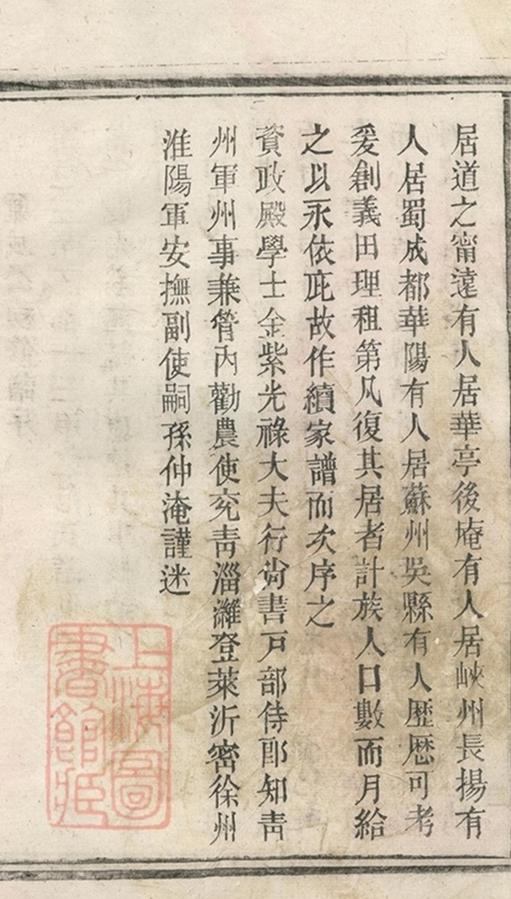 居道之甯遠有人居華亭後埯有人居峽州長揚有
人居蜀成都華陽有人居蘇州吳縣有人歷歷可考
爰創義田理租第凡復其居者計族人口數而月給
之以永依庇故作續家譜而次序之
資政殿學士金紫光祿大夫行尙書戸部侍郎知靑
州軍州事兼管內勸農使充靑淄濰登萊沂密徐州
淮陽軍安撫副使嗣孫仲淹謹述
上海圖
書館藏